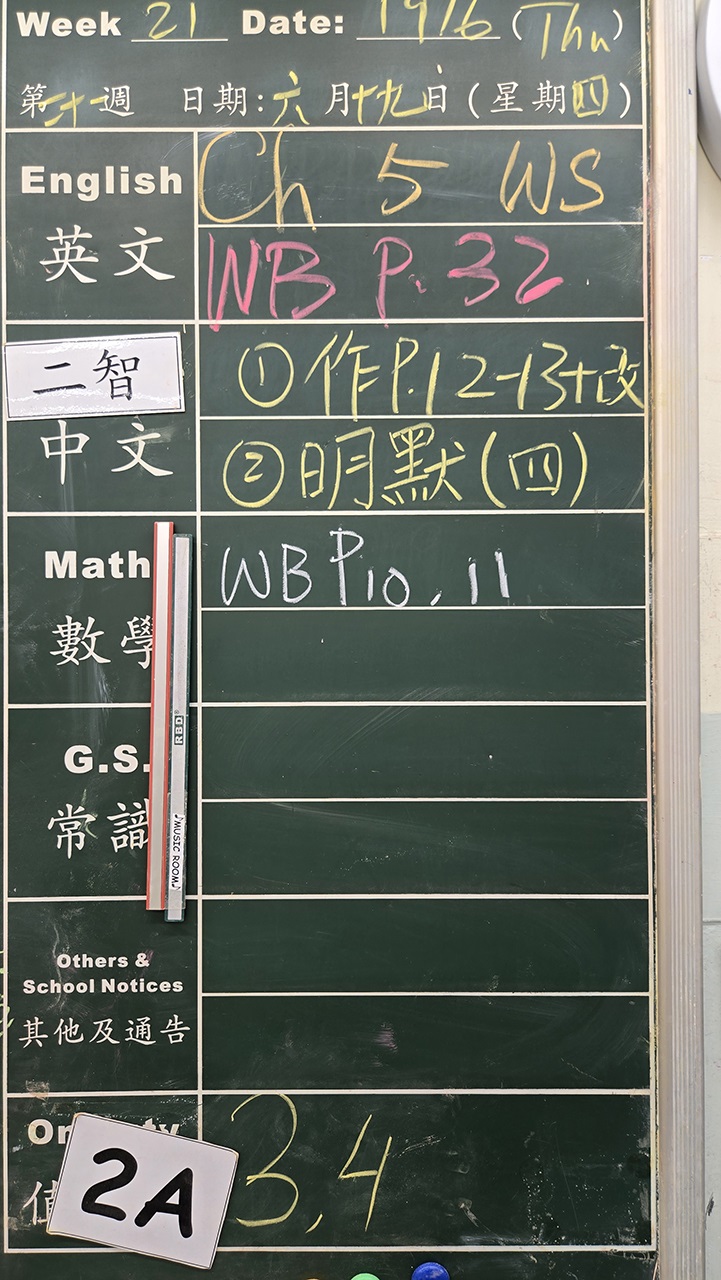 Week 21 Date: 19/6 (Thu)
第二十一週 日期:六月十九日(星期四)
English
英文
Ch 5 WS
WB P. 32
二智
中文
①作P.12-13+改
②明默(四)
Math
數學
WB P10, 11
G.S.
常識
RBD
♪MUSIC ROOM♪
Others &
School Notices
其他及通告
On
ty
2A
3, 4